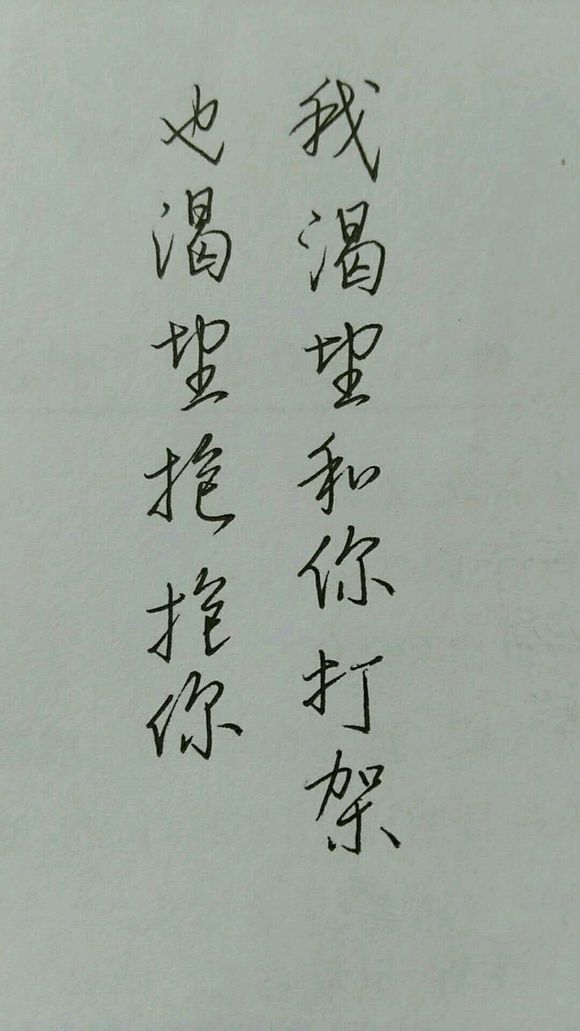 我渴望和你打架
也渴望抱抱你